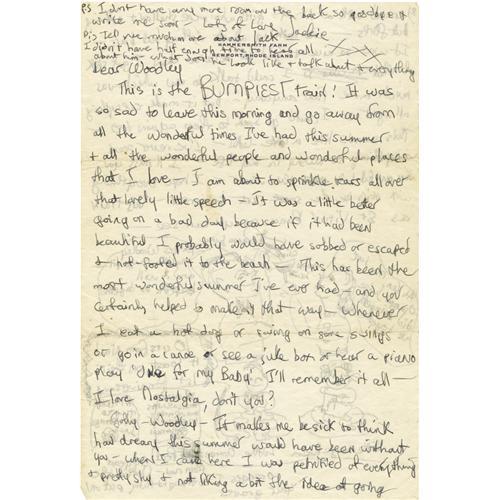 PS I didn't have any more room on the back so goodbye &
write me soon - Lots of Love
Jackie
P.S Tell me much more about Jack
I didn't have half enough time to hear all
about him - what does he look like & talk about & everything
HAMMERSMITH FARM
NEWPORT, RHODE ISLAND
Dear Woodley
This is the BUMPIEST train! It was
so sad to leave this morning and go away from
all the wonderful times I've had this summer
& all the wonderful people and wonderful places
that I love - I am about to sprinkle tears all over
that lovely little speech - It was a little better
going on a bad day because if it had been
beautiful I probably would have sobbed or escaped
& hot-footed it to the beach - This has been the
most wonderful summer I've ever had - and you
certainly helped to make it that way - whenever
I eat a hot dog or swing on some swings
or go in a canoe or see a juke box or hear a piano
play 'One for my Baby' I'll remember it all -
I love Nostalgia, don't you?
Golly - Woodley - It makes me sick to think
how dreary this summer would have been without
you - when I came here I was petrified of everything
& pretty shy & not liking a bit the idea of going